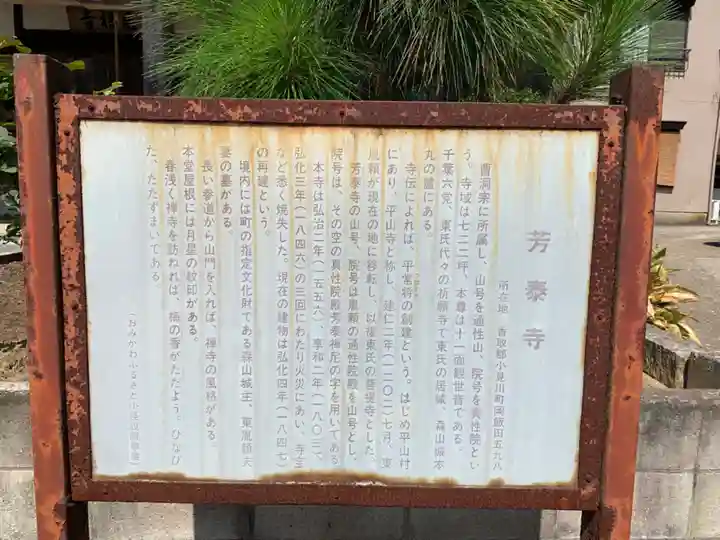 芳泰寺
所在地 香取郡小見川町岡飯田五九八
曹洞宗に所属し、山号を通性山、院号を真性院とい
う。寺域は七二二坪、本尊は十一面観世音である。
千葉六党、東氏代々の祈願寺で東氏の居城、森山城本
丸の麓にある。
寺伝によれば、平常将の創建という。はじめ平山村
にあり、平山寺と称し、建仁二年（一二〇二）七月、東
胤頼が現在の地に移転し、以後東氏の菩提寺とした。
芳泰寺の山号、院号は胤頼の通性院殿を山号とし、
院号は、その室の真性院殿芳泰禅尼の字を用いてある
本寺は弘治二年（一五五六）、享和二年（一八〇三）、
弘化三年（一八四六）の三回にわたり火災にあい、寺宝
など悉く焼失した。現在の建物は弘化四年（一八四七）
の再建という。
境内には町の指定文化財である森山城主、東胤頼夫
妻の墓がある。
長い参道から山門を入れば、禅寺の風格がある。
本堂屋根には月星の紋印がある。
春浅く禅寺を訪ねれば、梅の香がただよう、ひなび
た、たたずまいである
（おみかわふるさと小径設置事業）